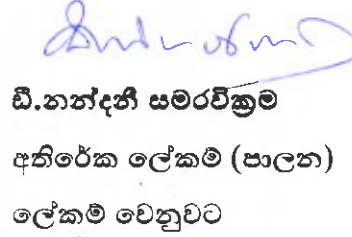 ඩී.නන්දනී සමරවික්‍රම
අතිරේක ලේකම් (පාලන)
ලේකම් වෙනුවට